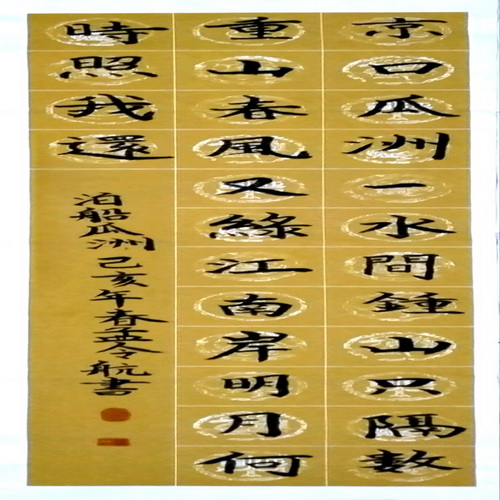 京口瓜洲一水間鍾山只隔數
重山春風又綠江南岸明月何
時照我還
泊船瓜洲己亥年春孟令航書